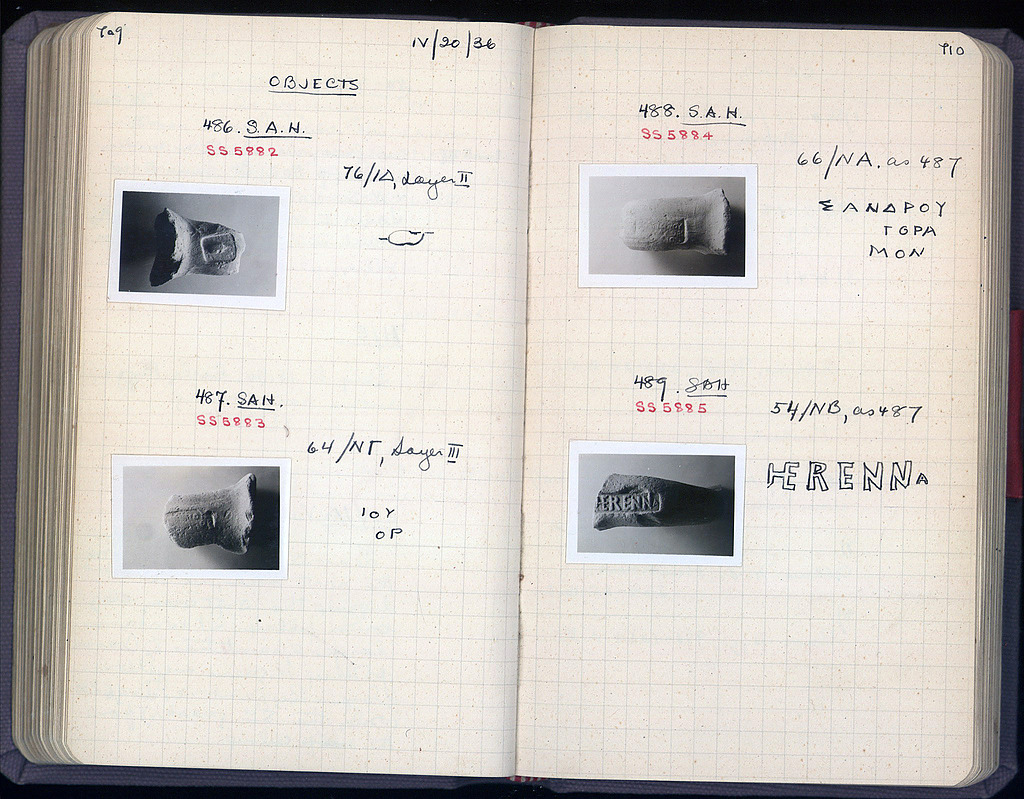 709
IV/20/36
OBJECTS
486. S.A.H.
SS 5882
76/ΙΔ, Layer II
487. SAH.
SS 5883
64/ΝΓ, Layer III
ΙΟΥ
ΟΡ
710
488. S.A.H.
SS 5884
66/ΝΑ. as 487
ΣΑΝΔΡΟΥ
ΓΟΡΑ
ΜΟΝ
489. SAH
SS 5885
54/ΝΒ, as 487
HERENNA
ERENNA